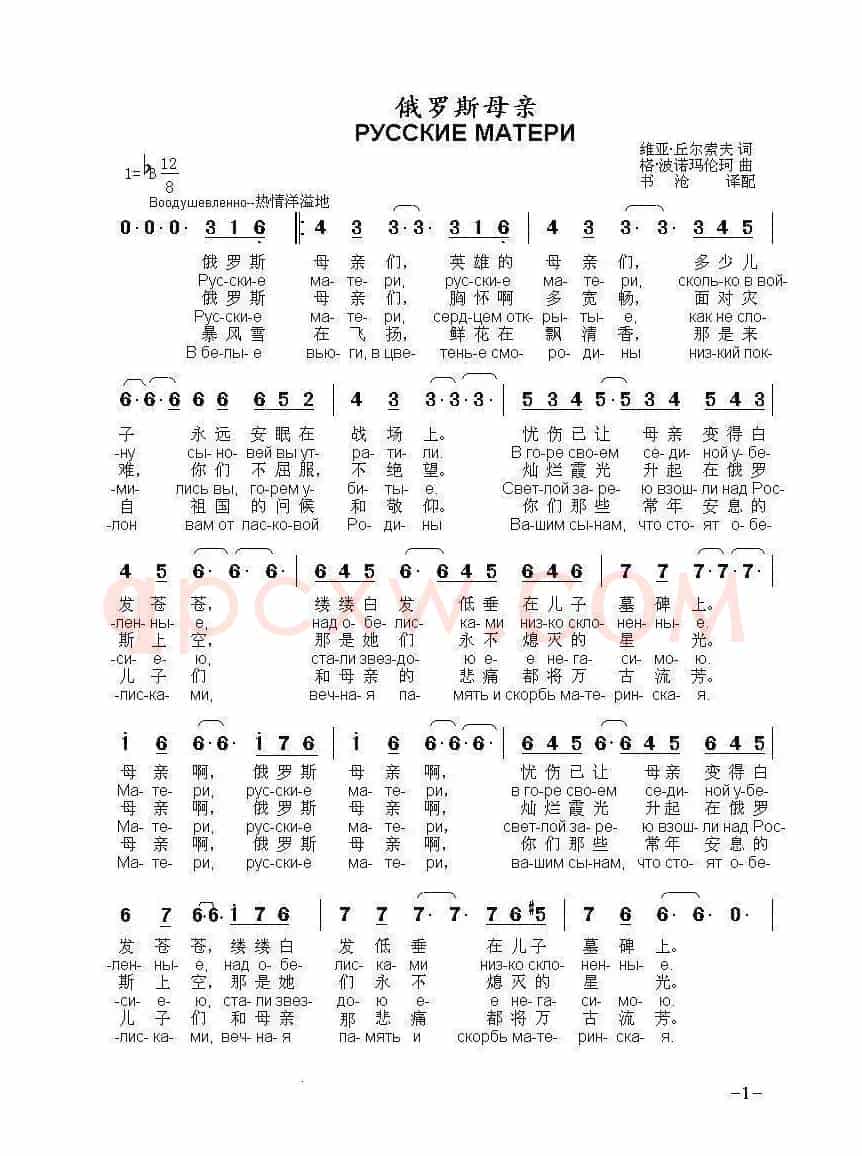 俄罗斯母亲
РУССКИЕ МАТЕРИ
维亚·丘尔索夫 词
1=♭B 12/8
格·波诺玛伦珂 曲
书 沧 译配
Воодушевленно--热情洋溢地
0·0·0· 3 1 6 4 3 3·3· 3 1 6 4 3 3·3· 3 4 5
俄 罗 斯 母 亲 们, 英 雄 的 母 亲 们, 多 少 儿
Рус-ски-е ма- те- ри, рус-ски-е ма- те- ри, сколь-ко в вой-
俄 罗 斯 母 亲 们, 胸 怀 啊 多 宽 畅, 面 对 灾
Рус-ски-е ма- те- ри, серд-цем отк- ры- ты-е, как не сло-
暴 风 雪 在 飞 扬, 鲜 花 在 飘 清 香, 那 是 来
В бе-лы-е вью-ги, в цве- тень-е смо- ро- ди- ны низ-кий пок-
6·6·6 6 6 6 5 2 4 3 3·3·3· 5 3 4 5·5 3 4 5 4 3
子 永 远 安 眠 在 战 场 上。 忧 伤 已 让 母 亲 变 得 白
-ну сы- но- вей вы ут- ра- ти- ли. В го-ре сво-ем се- ди- ной у- бе-
难, 你 们 不 屈 服, 不 绝 望。 灿 烂 霞 光 升 起 在 俄 罗
-ми- лись вы, го-рем у- би- ты- е. Свет-лой за- ре- ю взош- ли над Рос-
自 祖 国 的 问 候 和 敬 仰。 你 们 那 些 常 年 安 息 的
-лон вам от лас-ко-вой Ро- ди- ны Ва-шим сы-нам, что сто- ят о- бе-
4 5 6·6·6· 6 4 5 6·6 4 5 6 4 6 7 7 7·7·7·
发 苍 苍, 缕 缕 白 发 低 垂 在 儿 子 墓 碑 上。
-лен- ны- е, над о- бе- лис- ка- ми низ-ко скло- нен- ны- е.
斯 上 空, 那 是 她 们 永 不 熄 灭 的 星 光。
-си- е- ю, ста-ли звез-до- ю е- е не-га- си- мо- ю.
儿 子 们 和 母 亲 的 悲 痛 都 将 万 古 流 芳。
-лис-ка- ми, веч-на- я па- мять и скорбь ма-те- рин- ска- я.
i 6 6·6· i 7 6 i 6 6·6· 6 4 5 6·6 4 5 6 4 5
母 亲 啊, 俄 罗 斯 母 亲 啊, 忧 伤 已 让 母 亲 变 得 白
Ма- те- ри, рус-ски-е ма- те- ри, в го-ре сво-ем се- ди- ной у-бе-
母 亲 啊, 俄 罗 斯 母 亲 啊, 灿 烂 霞 光 升 起 在 俄 罗
Ма- те- ри, рус-ски-е ма- те- ри, свет-лой за- ре- ю взош- ли над Рос-
母 亲 啊, 俄 罗 斯 母 亲 啊, 你 们 那 些 常 年 安 息 的
Ма- те- ри, рус-ски-е ма- те- ри, ва-шим сы-нам, что сто- ят о- бе-
6 7 6·6· i 7 6 7 7 7·7·7· 7 6 #5 7 6 6·0·
发 苍 苍, 缕 缕 白 发 低 垂 在 儿 子 墓 碑 上。
-лен- ны- е, над о- бе- лис- ка- ми низ-ко скло- нен- ны- е.
斯 上 空, 那 是 她 们 永 不 熄 灭 的 星 光。
-си- е- ю, ста- ли звез- до- ю е- е не- га- си- мо- ю.
儿 子 们 和 母 亲 那 悲 痛 都 将 万 古 流 芳。
-лис- ка- ми, веч-на- я па- мять и скорбь ма-те- рин- ска- я.
-1-
qpcxw.com